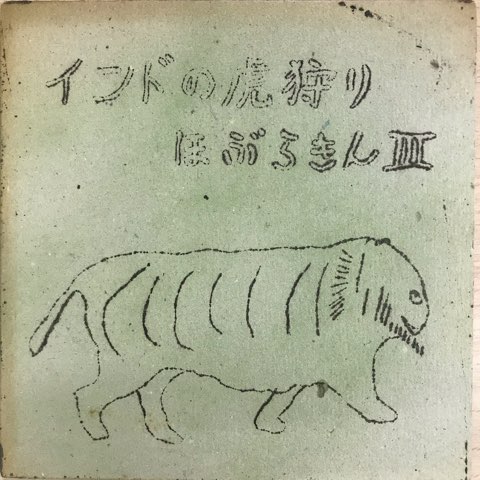 インドの虎狩り
ほぶらきん Ⅲ